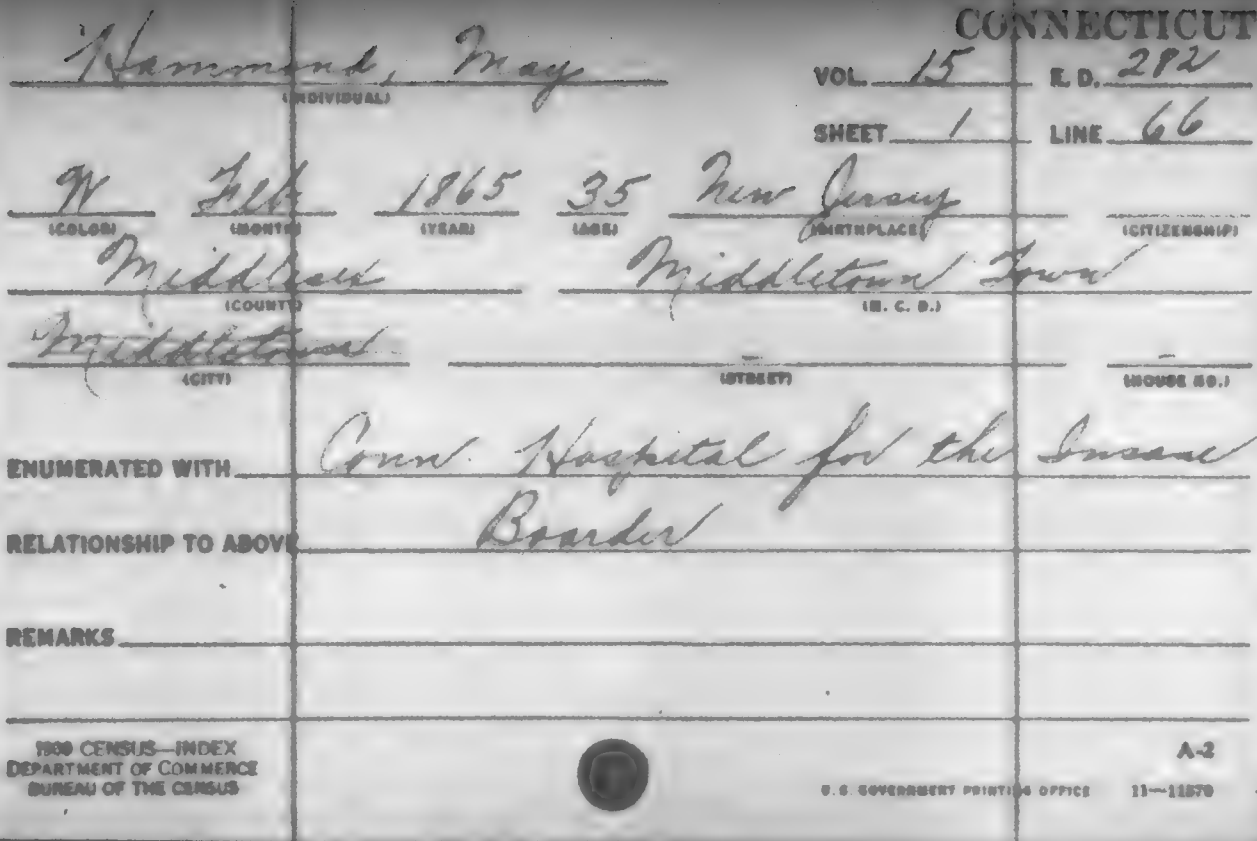 CONNECTICUT
Hammond, May VOL. 15 E. D. 282
(INDIVIDUAL)
SHEET 1 LINE 66
W Feb 1865 35 New Jersey
(COLOR) (MONTH) (YEAR) (AGE) (BIRTHPLACE) (CITIZENSHIP)
Middlesex Middletown Town
(COUNTY) (M. C. D.)
Middletown - -
(CITY) (STREET) (HOUSE NO.)
ENUMERATED WITH Conn. Hospital for the Insane
RELATIONSHIP TO ABOVE Boarder
REMARKS
1900 CENSUS—INDEX
DEPARTMENT OF COMMERCE
BUREAU OF THE CENSUS
A-2
U.S. GOVERNMENT PRINTING OFFICE 11—11570